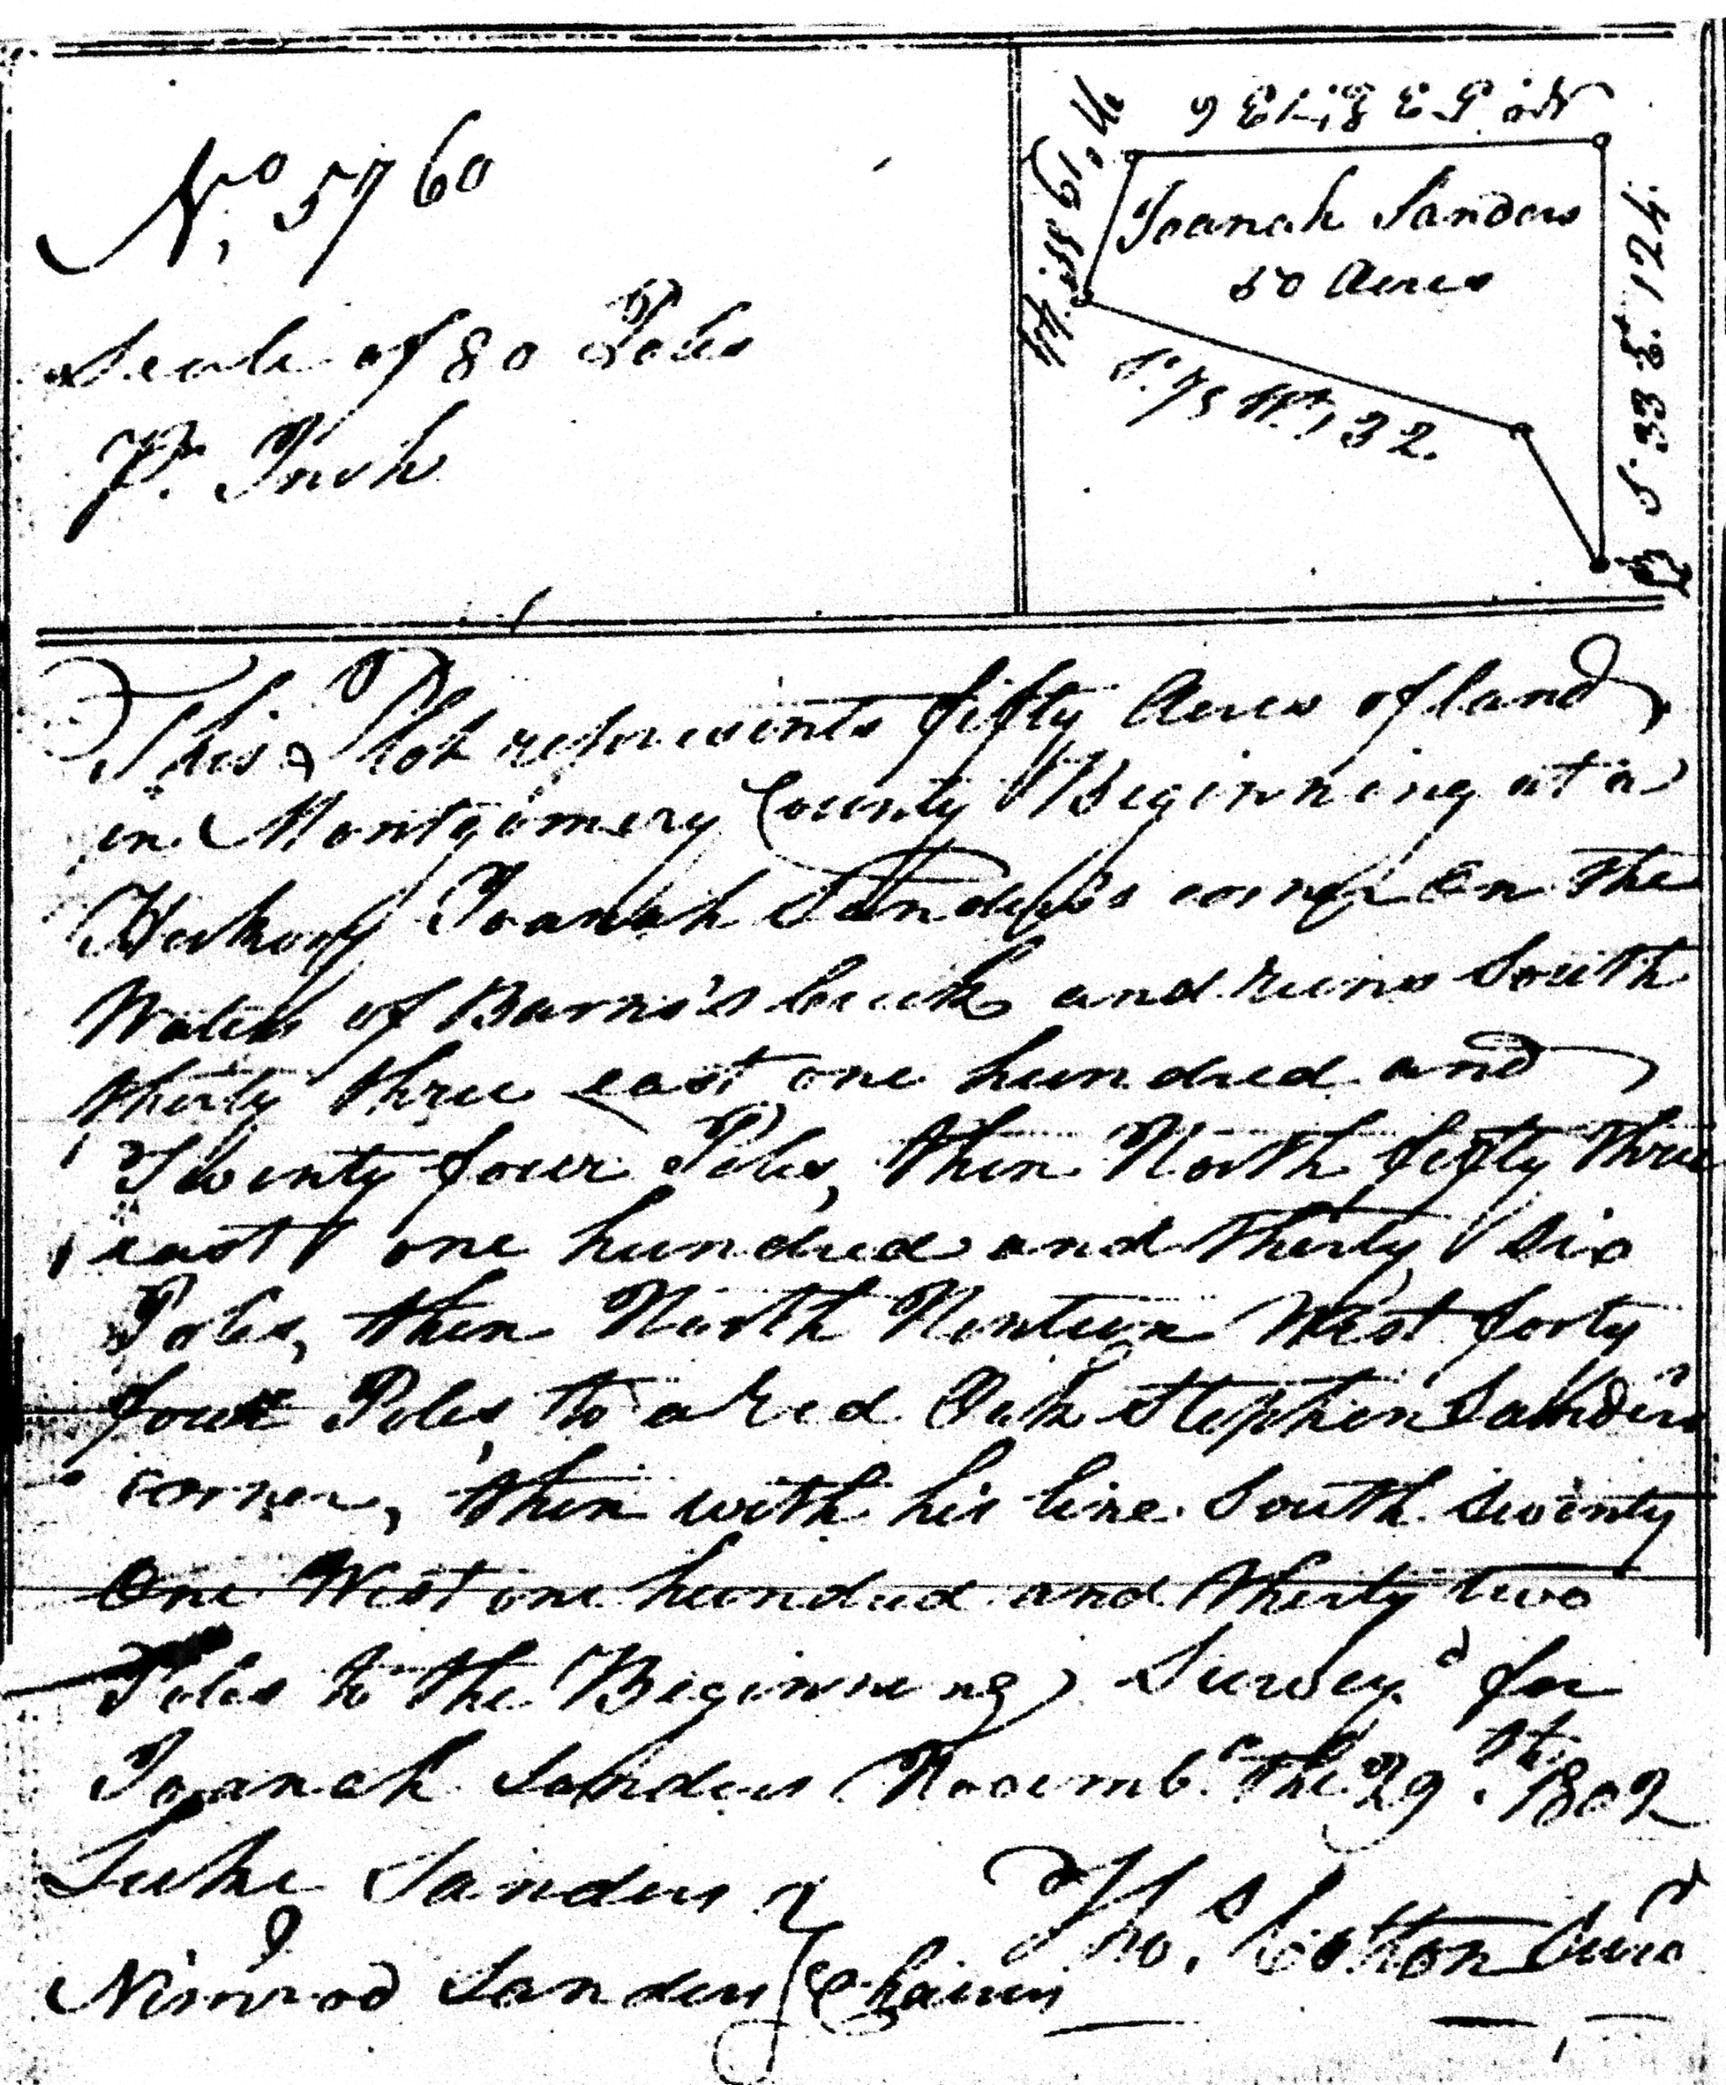 No. 5760
Scale of 80 Poles
Pr. Inch
No. 53 E 136
Joanah Sanders
50 Acres
S. 33 E. 124
N. 19 W
44
S. 75 Wt. 132.
This Plot represents fifty Acres of land
in Montgomery County Beginning at a
Hickory Joanah Sanders's corner on the
Waters of Barns's Creek and runs South
thirty three east one hundred and
Twenty four Poles, then North fifty three
east one hundred and thirty six
Poles, then North Ninteen West forty
four Poles, to a Red Oak Stephen Sanders
corner, then with his line South Seventy
One West one hundred and thirty two
Poles to the Beginning Survey.d for
Joanah Sanders Novemb.r the 29.th 1802
Luke Sanders
Nimrod Sanders Chainers
Thos. Cotton